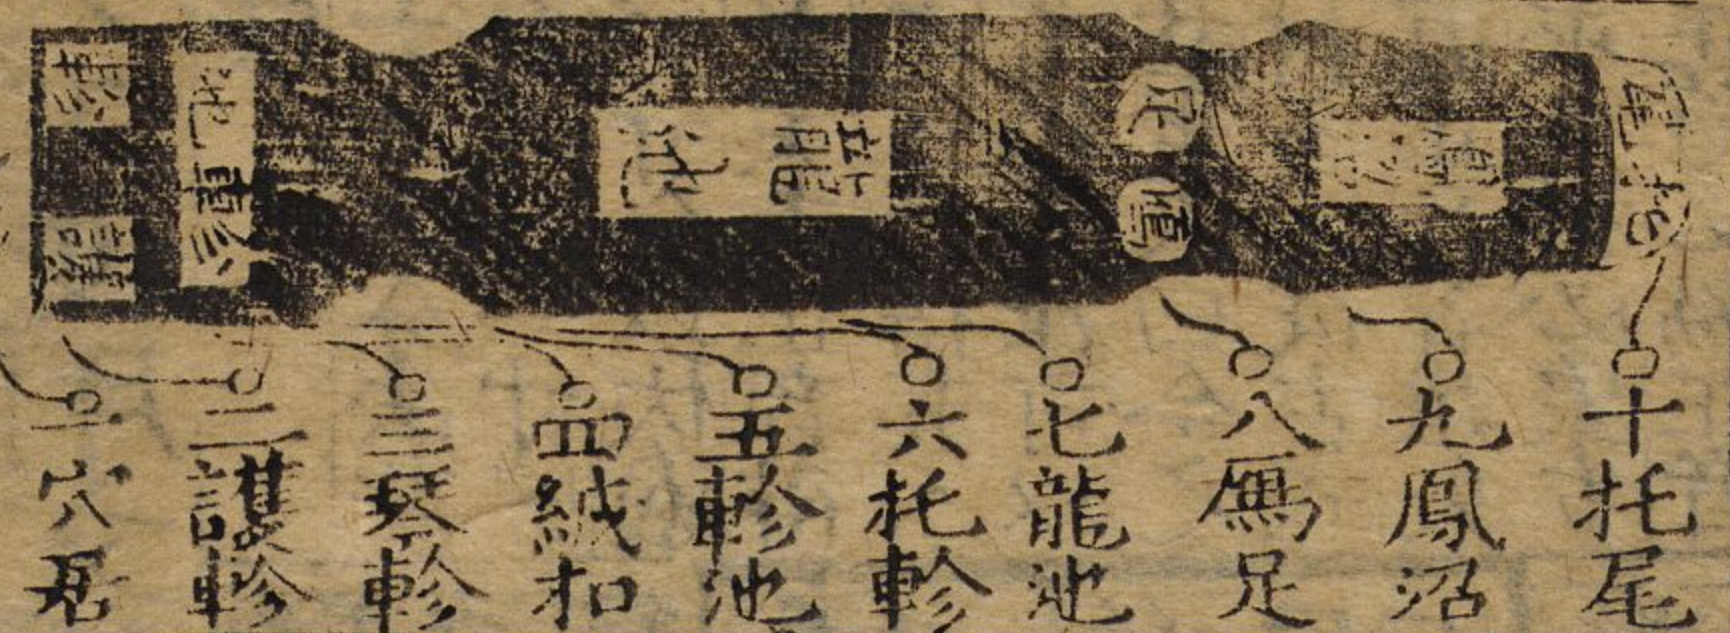 尾托
鳳沼
足
鴈
龍池
軫池
軫
護
十托尾
九鳳沼
八鴈足
七龍池
六托軫
五軫池
四絨扣
三琴軫
二護軫
一穴居